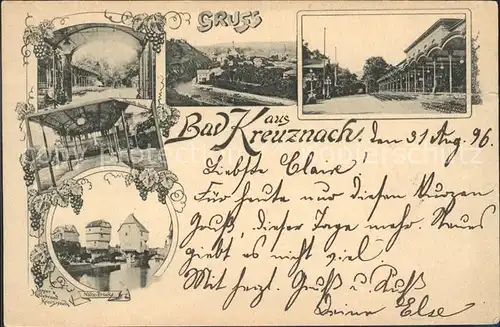 GRUSS
aus
Bad Kreuznach, den 31 Aug. 96.
Liebste Claire!
Für heute nur diesen kurzen
Gruß, dieser Tage mehr. Neues
giebt es nicht viel.
Mit herzl. Gruß u. Kuß
Deine Else
Nahe-Brücke
Kreuznach